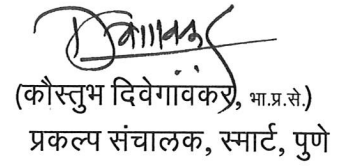 (कौस्तुभ दिवेगावकर, भा.प्र.से.)
प्रकल्प संचालक, स्मार्ट, पुणे